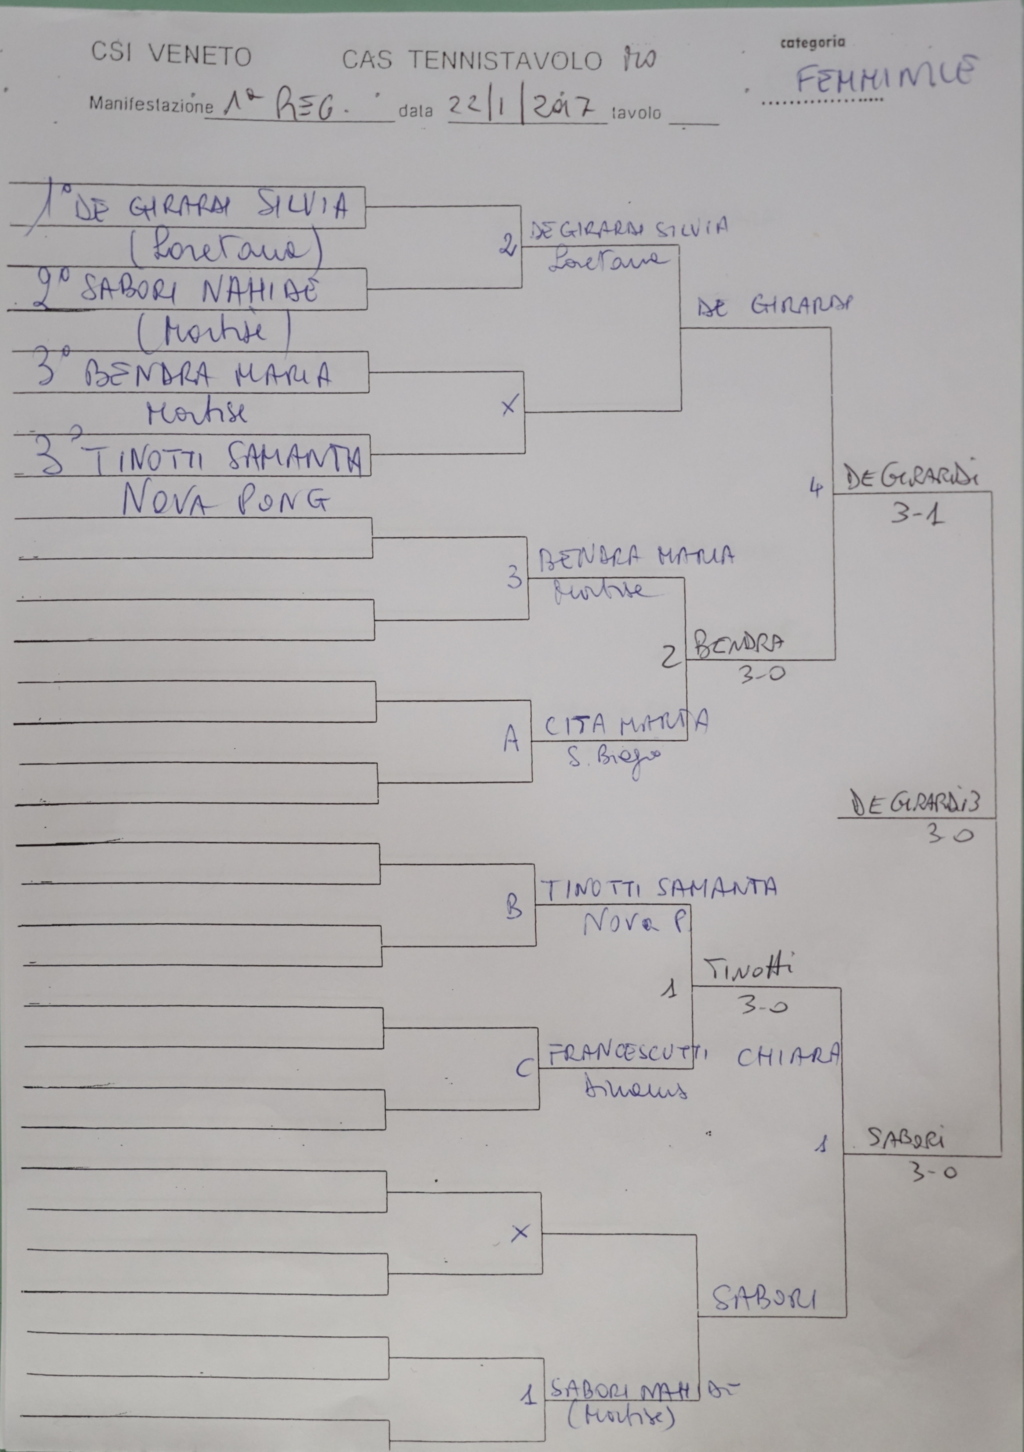 CSI VENETO CAS TENNISTAVOLO categoria
FEMMINILE
Manifestazione 1ª REG. data 22/1/2017 tavolo
1° DE GIRARDI SILVIA
(Loretana)
2° SABORI NAHIDE
(Mortise)
3° BENDRA MARIA
Mortise
3° TINOTTI SAMANTA
NOVA PONG
2 DE GIRARDI SILVIA
Loretana
DE GIRARDI
X
4 DE GIRARDI
3-1
3 BENDRA MARIA
Mortise
2 BENDRA
3-0
A CITA MARTA
S. Biagio
DE GIRARDI 3
3-0
B TINOTTI SAMANTA
Nova P
1 TINOTTI
3-0
C FRANCESCUTTI CHIARA
1 SABORI
3-0
X
SABORI
1 SABORI NAHIDE
(Mortise)